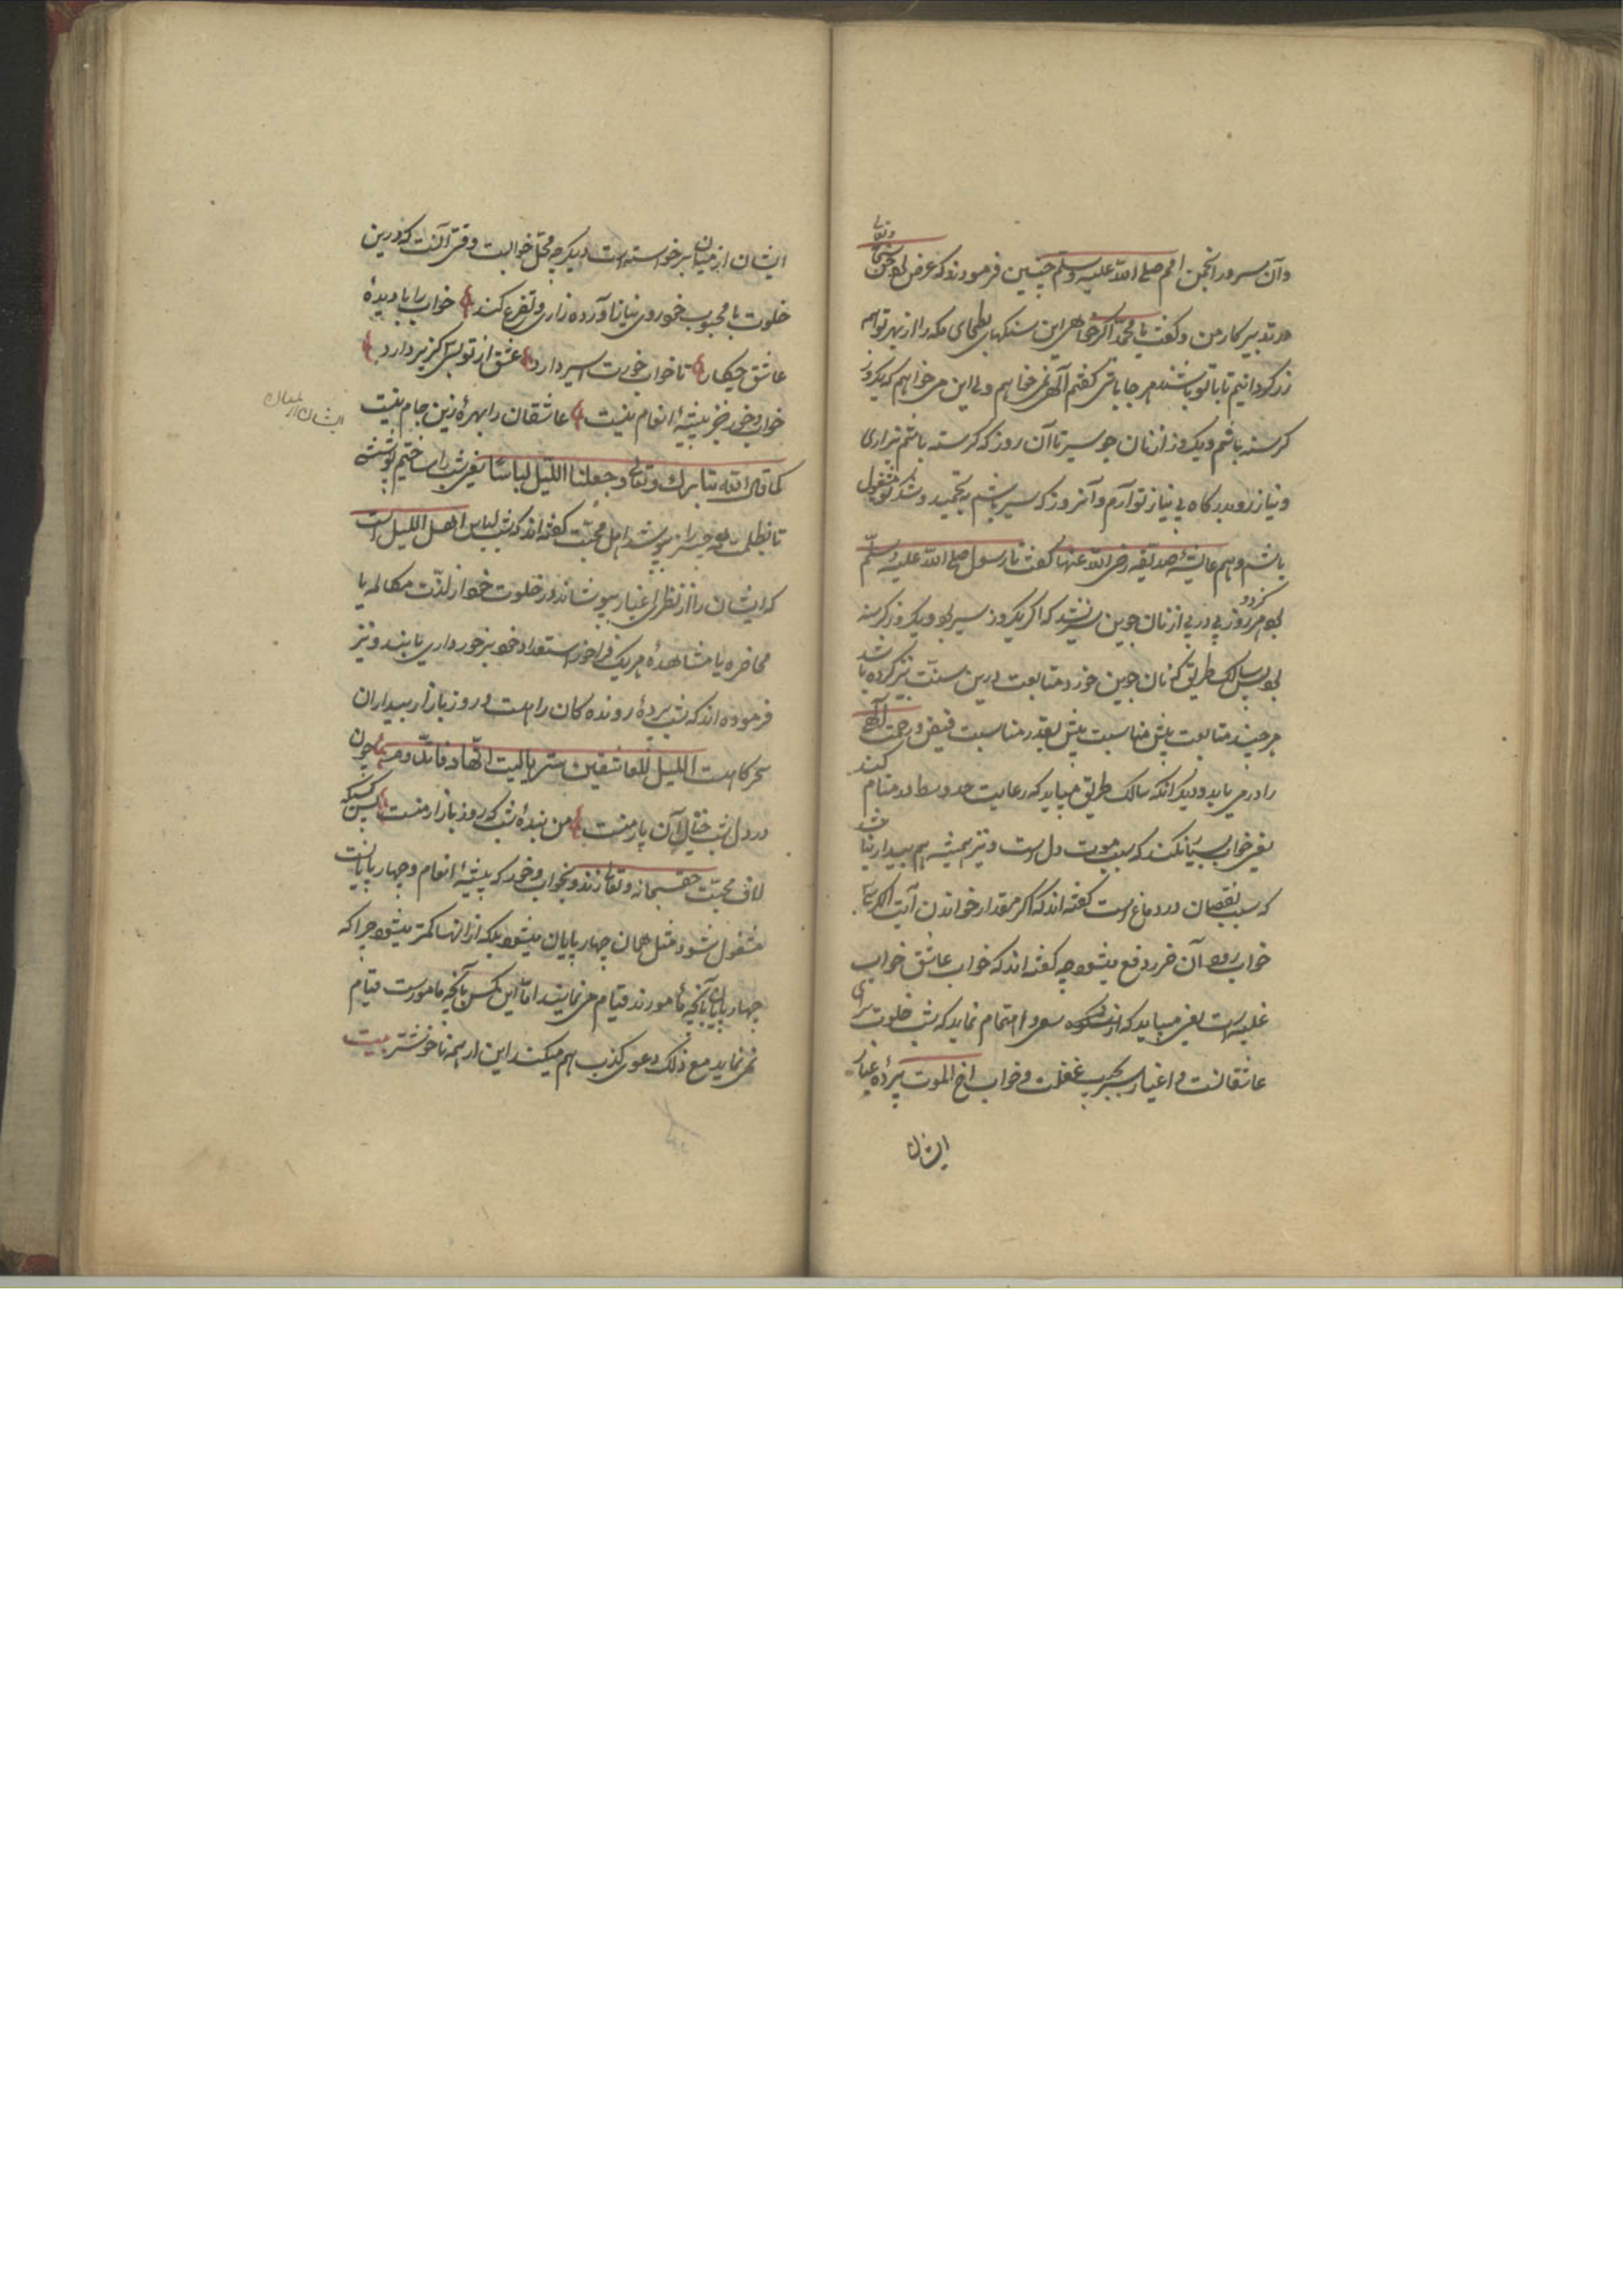 وتعالی
وآن سرور انجمن امم صلے اللّٰه علیه وسلم چنین فرمودند که عرض بمن حق سبحانه
در تدبیر کار من وگفت یا محمد اگر خواهی این سنگهای بطحای مکه را از بهر تو هم
زر گردانیم تا با تو باشند هر جا باشی گفتم الٰهی نمی خواهم ولی این می خواهم که یکروز
گرسنه باشم ویکروز از نان جو سیر تا آن روز که گرسنه باشم بزاری
ونیاز رو بدرگاه بی نیاز تو آرم وآنروز که سیر باشم بتحمید وشکر تو مشغول
باشم وهم عایشهٔ صدیقه رضی اللّٰه عنها گفت تا رسول صلے اللّٰه علیه وسلّم
بود هرگز دو روز پی در پی از نان جوین سیر نشد که اگر یکروز سیر بودی یکروز گرسنه
بودی پس سالک طریق که نان جوین خورد متابعت درین سنت نیز کرده باشد
هر چند متابعت بیش مناسبت بیش بقدر مناسبت فیض ورحمت الٰهی
را در می یابد ودیگر آنکه سالک طریق میباید که رعایت حد وسط در منام کند
یعنی خواب بسیار نکند که سبب موت دل است ونیز همیشه هم بیدار نباشد
که سبب نقصان در دماغ است گفته اند که اگر مقدار خواندن آیت الکرسی
خواب رود آن ضرر دفع میشود چه گفته اند که خواب عاشق خواب
غلبه است یعنی میباید که سعی واهتمام نماید که شب خلوت برای
عاشقانست واغیار بسبب غفلت وخواب اخ الموت پردهٔ عیار
ایشان
ایشان از میان برخواسته است دیگر چه محل خوابست وقتی آنست که درین
خلوت با محبوب خود روی نیاز آورده زاری وتضرع کند خواب را با دیدهٔ
عاشق چکار تا خواب خورت اسیر دارد عشق از تو بسی گزیر دارد
خواب وخور جز پیشهٔ انعام نیست عاشقان را بهرهٔ زین جام نیست
ایشان از میان
کما قال اللّٰه تبارک وتعالی وجعلنا اللیل لباسًا یعنی شب را ساختیم پوششی
تا بظلمت همه چیز را بپوشد اهل محبّت گفته اند که شب لباس اهل اللیل است
که ایشان را از نظر اغیار بپوشاند ودر خلوت خود از لذّت مکالمه یا
محاضره یا مشاهدهٔ هر یک فراخور استعداد خود برخورداری یابند ونیز
فرموده اند که شب پردهٔ رونده گان راه است وروز بازار بیداران
سحرگاه است اللیل للعاشقین ستر یا لیت اوقاته تدوم چون
در دل شب خیال آن یار منست من بندهٔ شب که روز بازار منست پس کسیکه
لاف محبّت حق سبحانه وتعالی زند وبخواب وخور که پیشهٔ انعام وچهارپایانست
مشغول شود مثل همان چهارپایان میشود بلکه از انها کمتر میشود چرا که
چهارپایان بآنچه مأمورند قیام می نمایند امّا این کس بآنچه مامورست قیام
نمی نماید مع ذلک دعوی کذب هم میکند این از همه ناخوشتر بیت